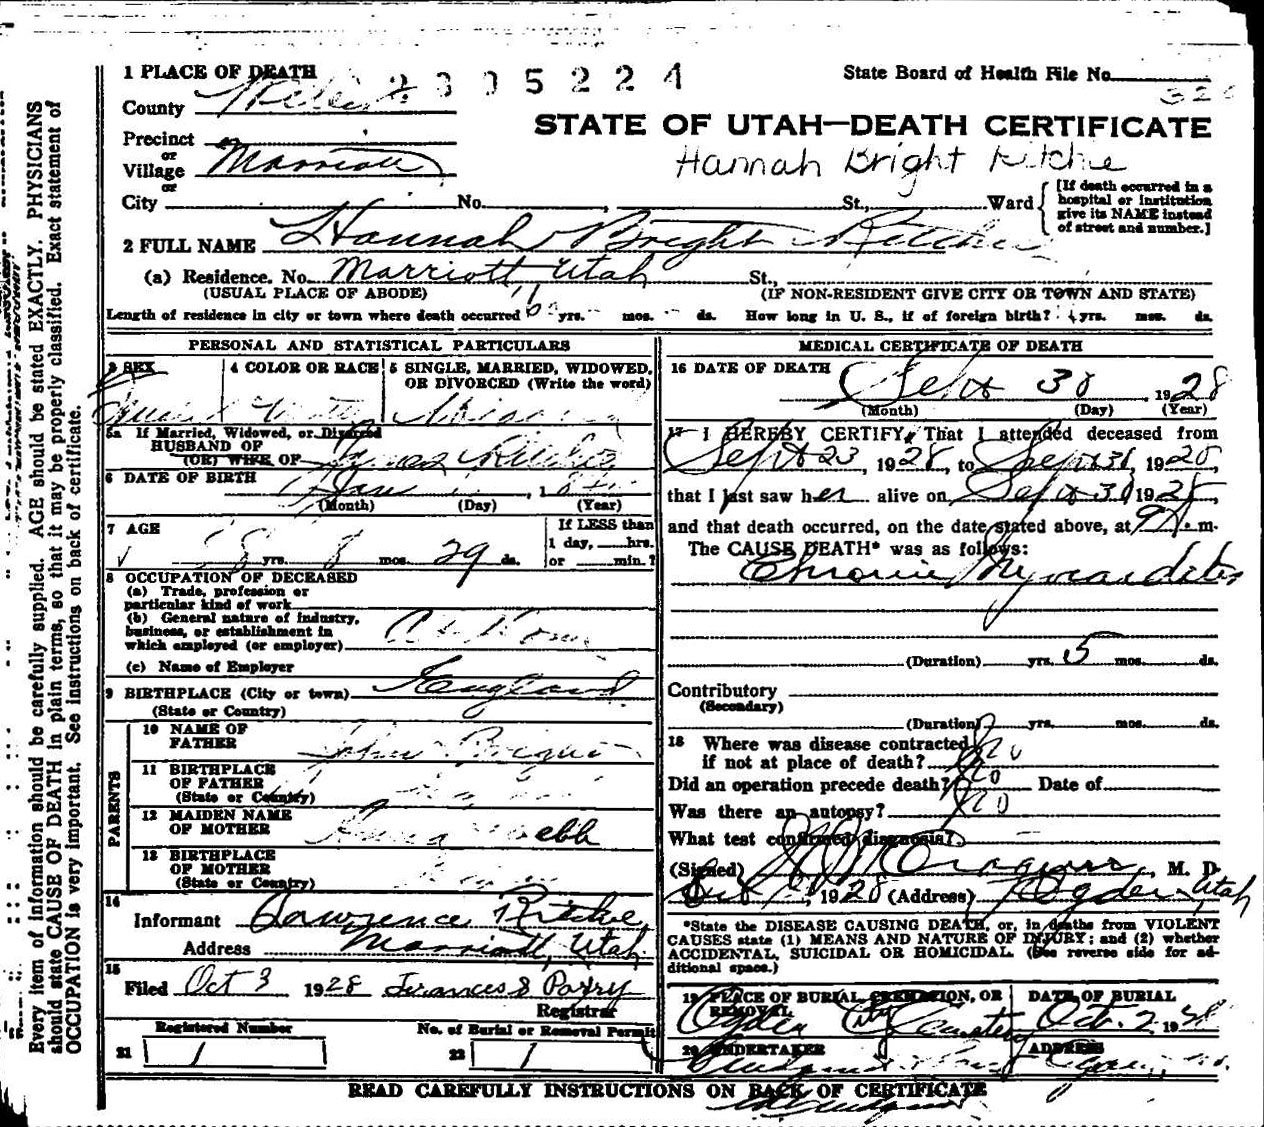 1 PLACE OF DEATH
2305224
State Board of Health File No.
County
STATE OF UTAH—DEATH CERTIFICATE
Precinct
or
Village Marriott
Hannah Bright Ritchie
or
City No. St., Ward
[If death occurred in a
hospital or institution
give its NAME instead
of street and number.]
2 FULL NAME Hannah Bright Ritchie
(a) Residence. No. Marriott Utah St.,
(USUAL PLACE OF ABODE) (IF NON-RESIDENT GIVE CITY OR TOWN AND STATE)
Length of residence in city or town where death occurred yrs. mos. ds. How long in U. S., if of foreign birth? yrs. mos. ds.
PERSONAL AND STATISTICAL PARTICULARS
3 SEX 4 COLOR OR RACE 5 SINGLE, MARRIED, WIDOWED,
OR DIVORCED (Write the word)
5a If Married, Widowed, or Divorced
HUSBAND OF
(OR) WIFE OF Ritchie
6 DATE OF BIRTH Jan
(Month) (Day) (Year)
7 AGE 8 yrs. 8 mos. 29 ds.
If LESS than
1 day, hrs.
or min.?
8 OCCUPATION OF DECEASED
(a) Trade, profession or
particular kind of work
(b) General nature of industry,
business, or establishment in
which employed (or employer) At Home
(c) Name of Employer
9 BIRTHPLACE (City or town) England
(State or Country)
PARENTS
10 NAME OF
FATHER John Bright
11 BIRTHPLACE
OF FATHER
(State or Country)
12 MAIDEN NAME
OF MOTHER Webb
13 BIRTHPLACE
OF MOTHER
(State or Country)
14
Informant Lawrence Ritchie
Address Marriott, Utah
15
Filed Oct 3 1928 Frances S Parry
Registrar
Registered Number No. of Burial or Removal Permit
21 1 22 1
MEDICAL CERTIFICATE OF DEATH
16 DATE OF DEATH Sept 30, 1928
(Month) (Day) (Year)
17 I HEREBY CERTIFY, That I attended deceased from
Sept 23, 1928, to Sept 30, 1928,
that I last saw her alive on Sept 30 1928,
and that death occurred, on the date stated above, at 9 A. m.
The CAUSE DEATH* was as follows:
Chronic Myocarditis
(Duration) yrs. 5 mos. ds.
Contributory
(Secondary)
(Duration) yrs. mos. ds.
18 Where was disease contracted
if not at place of death? No
Did an operation precede death? No Date of
Was there an autopsy? No
What test confirmed diagnosis?
(Signed) M. D.
1928 (Address) Ogden, Utah
*State the DISEASE CAUSING DEATH, or, in deaths from VIOLENT
CAUSES state (1) MEANS AND NATURE OF INJURY; and (2) whether
ACCIDENTAL, SUICIDAL OR HOMICIDAL. (See reverse side for ad-
ditional space.)
19 PLACE OF BURIAL, CREMATION, OR
REMOVAL DATE OF BURIAL
Ogden City Cemetery Oct. 2 1928
20 UNDERTAKER ADDRESS
READ CAREFULLY INSTRUCTIONS ON BACK OF CERTIFICATE
Every item of information should be carefully supplied. AGE should be stated EXACTLY. PHYSICIANS
should state CAUSE OF DEATH in plain terms, so that it may be properly classified. Exact statement of
OCCUPATION is very important. See instructions on back of certificate.